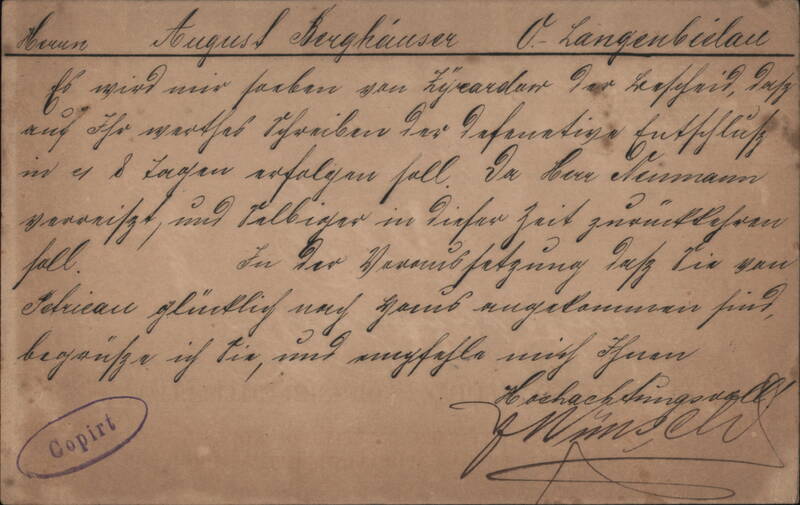 Herrn August Berghäuser O.-Langenbielau
Es wird mir soeben von Zÿrardow der Bescheid, dasz
auf Ihr werthes Schreiben der defenetive Entschlusz
in 8 Tagen erfolgen soll. Da Herr Neumann
verreiszt, und Selbiger in dieser Zeit zurückkehren
soll. In der Voraussetzung dasz Sie von
Petricau glücklich nach Haus angekommen sind,
begrüsze ich Sie, und empfehle mich Ihnen
Hochachtungsvoll
Copirt